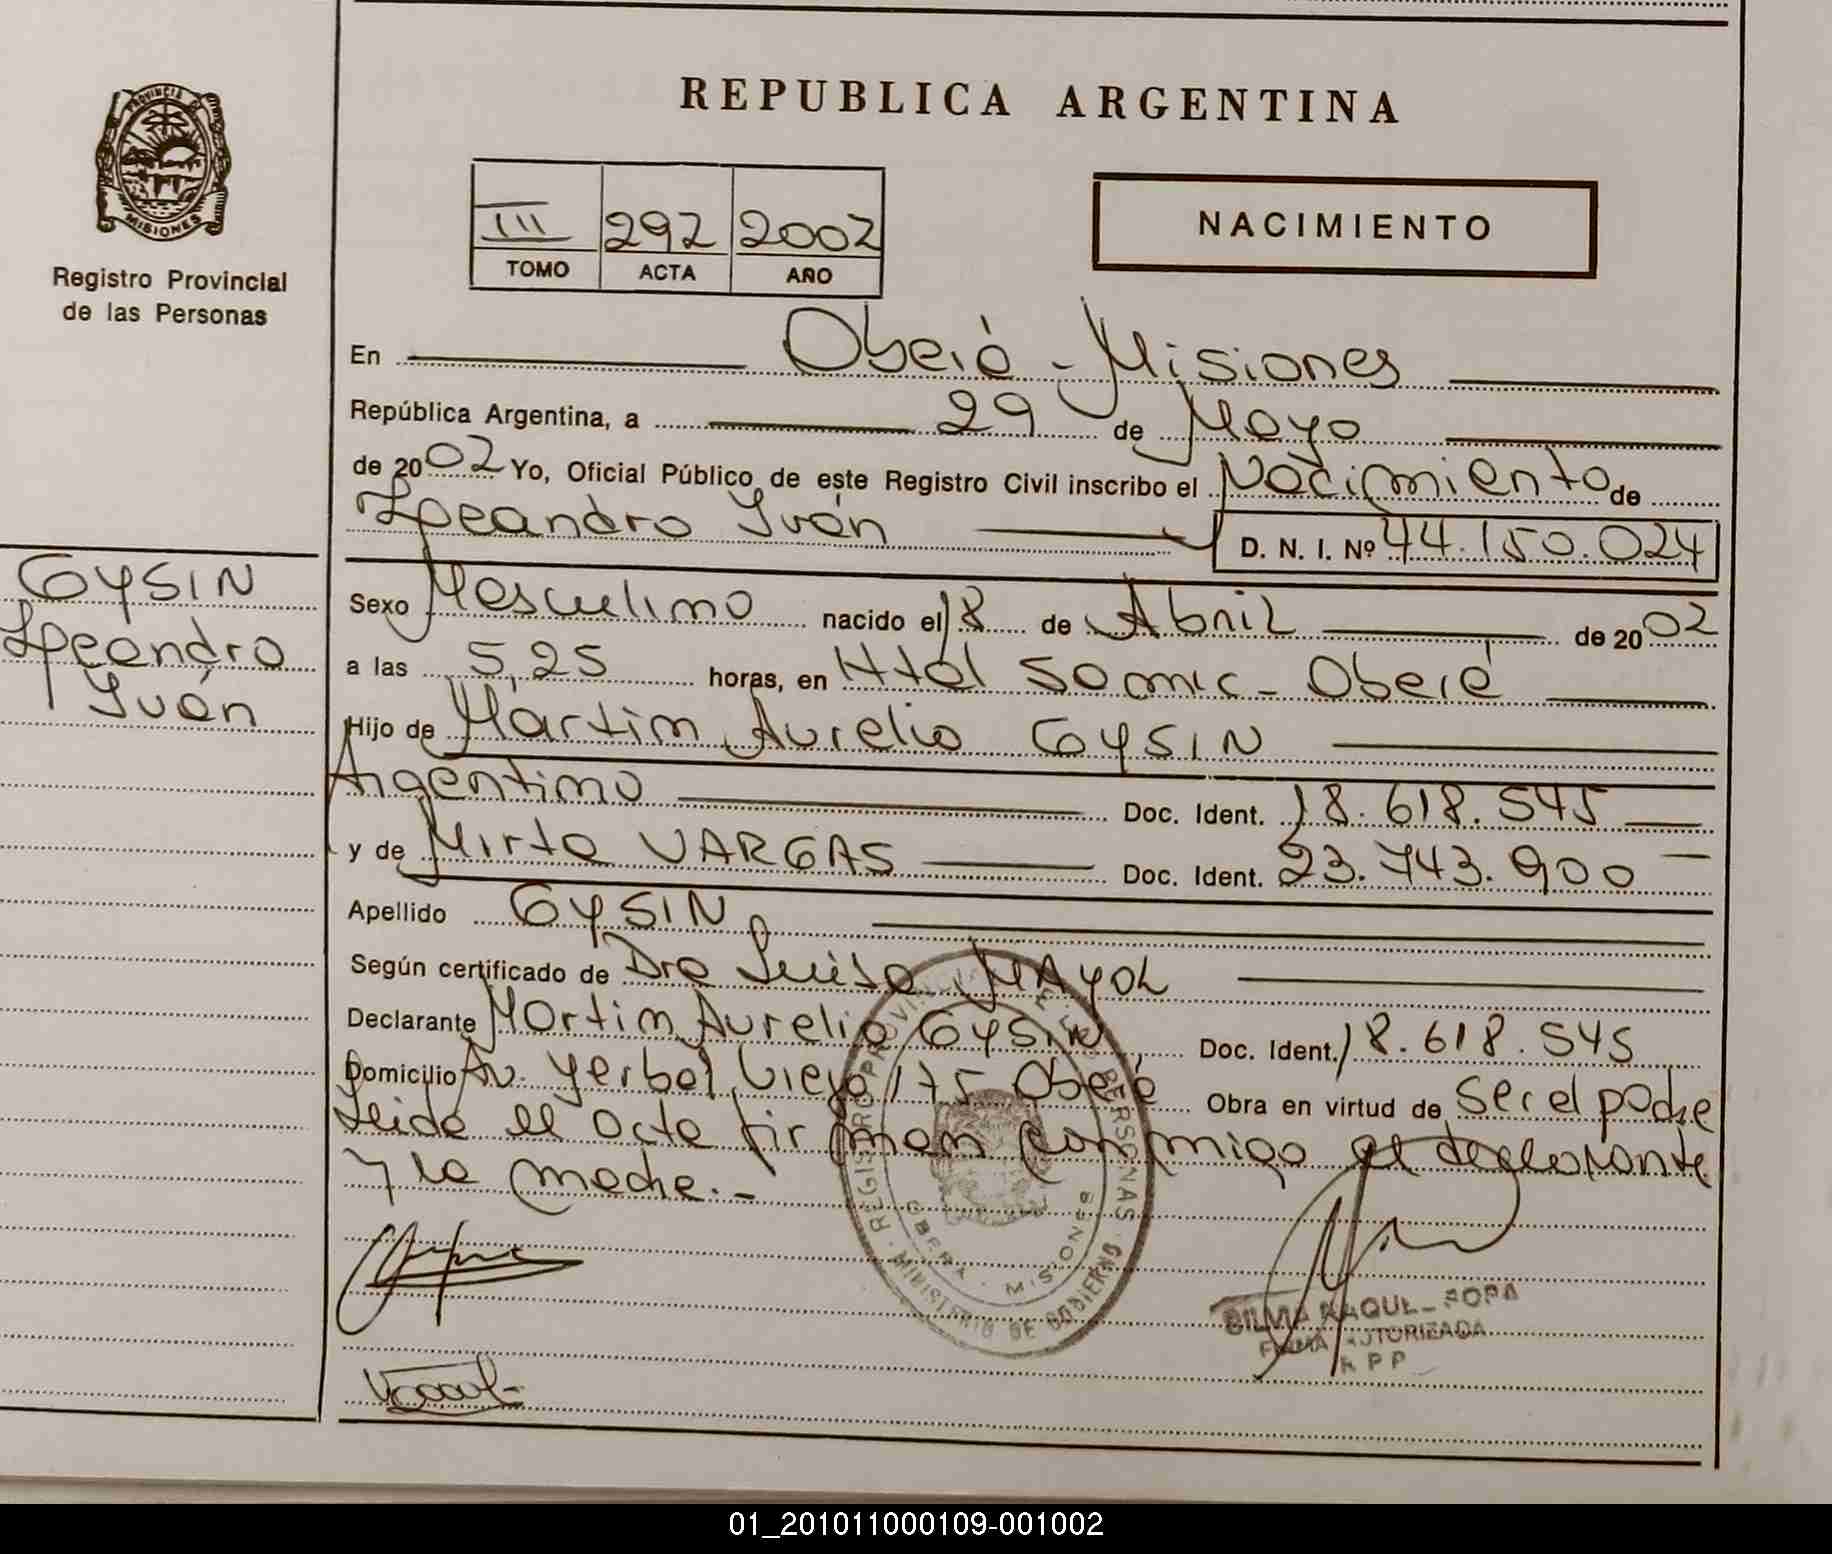 PROVINCIA DE
MISIONES
Registro Provincial
de las Personas
REPUBLICA ARGENTINA
III 292 2002
TOMO ACTA AÑO
NACIMIENTO
En Oberá - Misiones
República Argentina, a 29 de Mayo
de 2002 Yo, Oficial Público de este Registro Civil inscribo el Nacimiento de
Leandro Iván D. N. I. Nº 44.150.024
GYSIN
Leandro
Iván
Sexo Masculino nacido el 18 de Abril de 2002
a las 5,25 horas, en Htal Samic - Oberá
Hijo de Martin Aurelio GYSIN
Argentino Doc. Ident. 18.618.545
y de Mirta VARGAS Doc. Ident. 23.743.900
Apellido GYSIN
Según certificado de Dra Luisa MAYOL
Declarante Martin Aurelio GYSIN, Doc. Ident. 18.618.545
Domicilio Av. Yerbal Viejo 175 Oberá Obra en virtud de ser el padre
Leida el acta firman conmigo el declarante
y la madre.-
REGISTRO PROVINCIAL DE LAS PERSONAS
MINISTERIO DE GOBIERNO
OBERA - MISIONES
RAQUEL
FIRMA AUTORIZADA
R P P
01_201011000109-001002